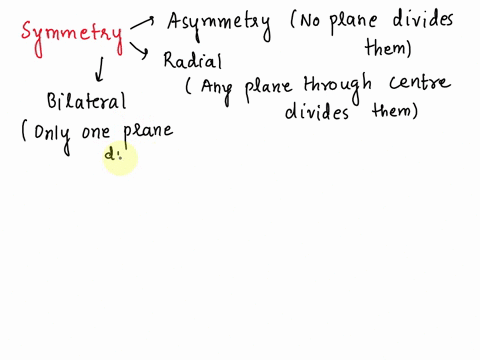 Symmetry
Asymmetry (No plane divides
them)
Radial
(Any plane through centre
divides them)
Bilateral
(Only one plane
di